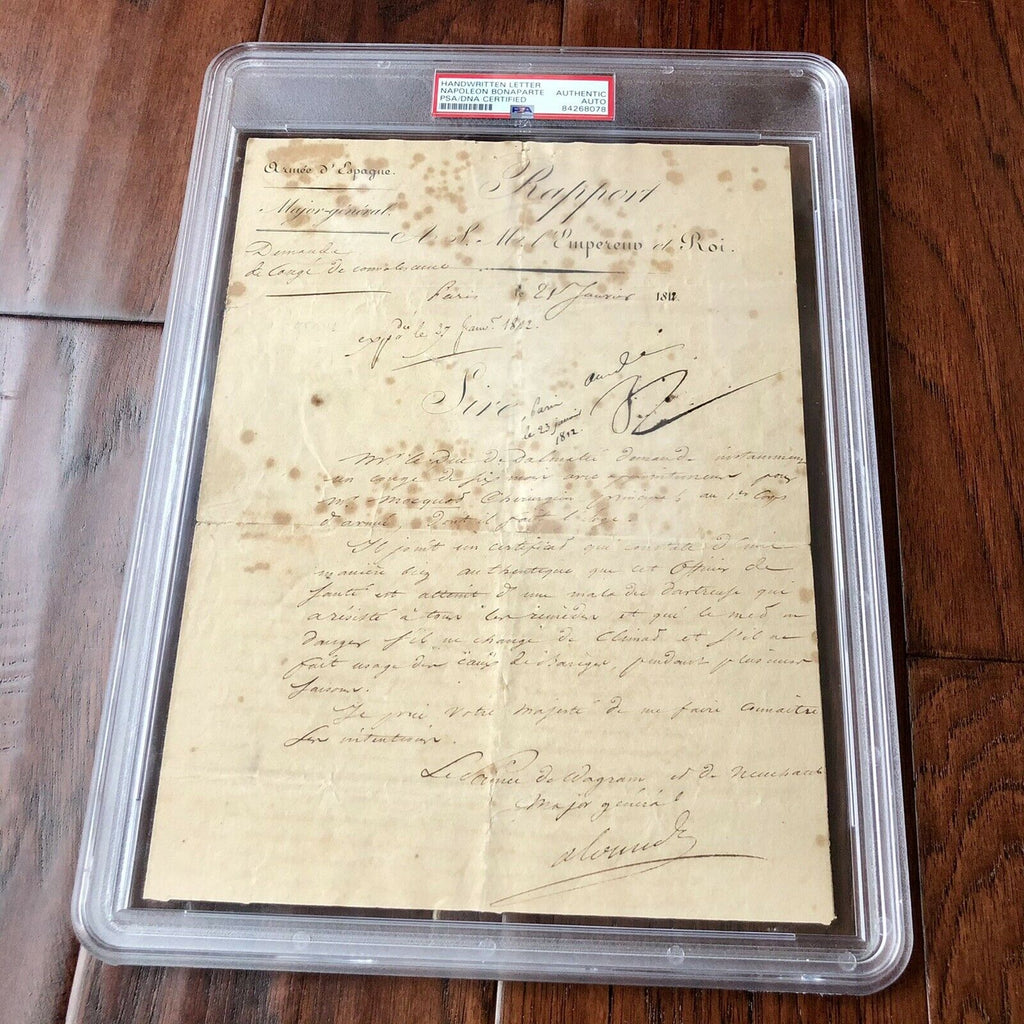 HANDWRITTEN LETTER
NAPOLEON BONAPARTE
PSA/DNA CERTIFIED
AUTHENTIC
AUTO
84268078
PSA
Armée d'Espagne.
Major-général.
Demande
de Congé de convalescence
Rapport
A S. M. l'Empereur et Roi.
Paris le 21 Janvier 1812.
expédié le 27 Janv.r 1812.
Sire
Paris
le 23 janvier
1812.
Mr. le Duc de Dalmatie demande instamment
un congé de six mois avec appointemens pour
Mr. Chirurgien principal au 1er Corps
d'armée, dont il fait l'éloge.
Il joint un certificat qui constate d'une
manière bien authentique que cet Officier de
Santé est atteint d'une maladie dartreuse qui
a résisté à tous les remèdes et qui le met en
danger s'il ne change de Climat et s'il ne
fait usage des eaux de Barèges pendant plusieurs
saisons.
Je prie Votre Majesté de me faire Connaitre
ses intentions.
Le Prince de Wagram et de Neuchatel
Major général